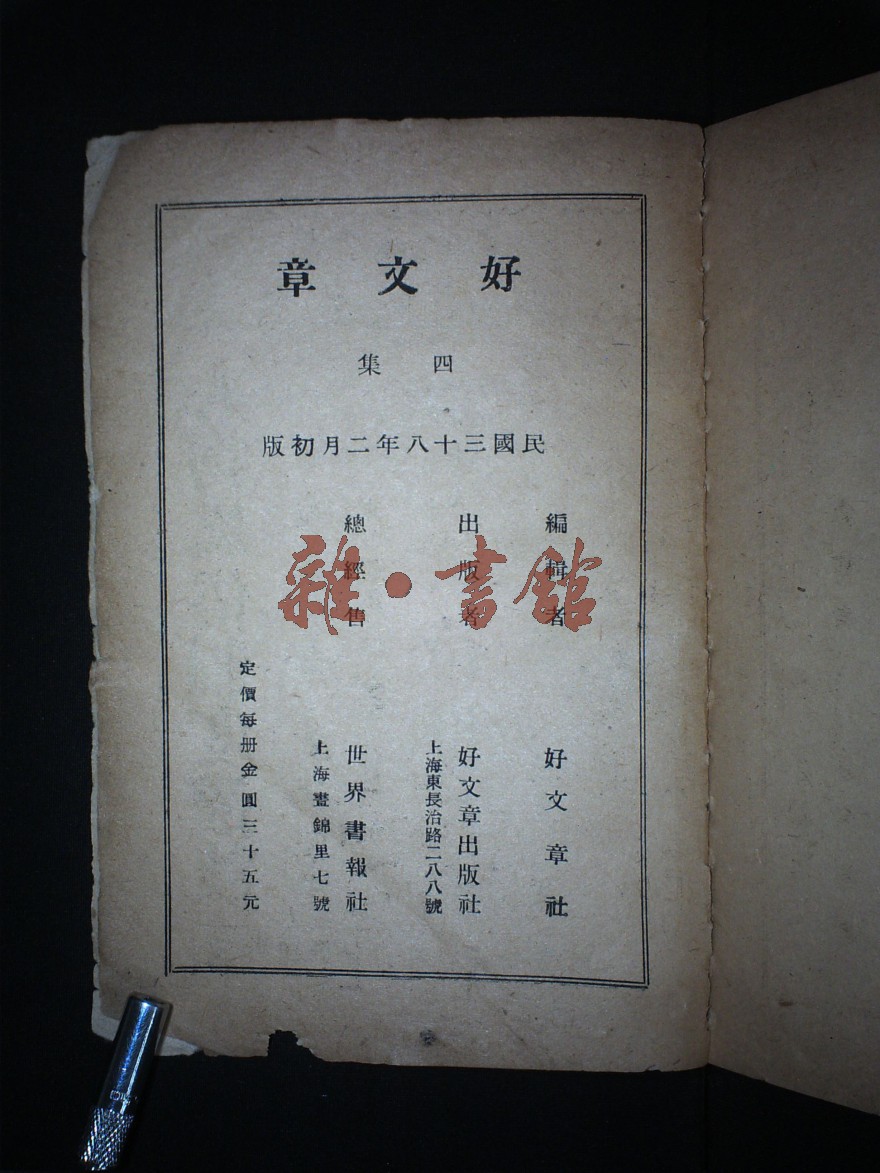 好文章
四集
民國三十八年二月初版
編輯者 好文章社
出版者 好文章出版社
上海東長治路二八八號
總經售 世界書報社
上海晝錦里七號
定價每册金圓三十五元
雜·書館